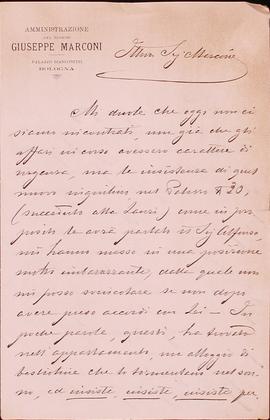 AMMINISTRAZIONE
DEL SIGNOR
GIUSEPPE MARCONI
PALAZZO MARCONI
BOLOGNA
Illmo Sig. Marconi
Mi duole che oggi non ci
siamo incontrati, non già che gli
affari in corso avessero carattere di
urgenza, ma le insistenze di quel
nuovo inquilino nel N. 20,
(succeduto alla) come in pro
posito le avrà parlato il Sig. Alfonso,
mi hanno messo in una posizione
molto imbarazzante, dalla quale non
mi posso svincolare se non dopo
avere preso accordi con Lei — In
poche parole, questi, ha trovato
nell'appartamento, un alloggio di
bestioline che lo tormentano nel son
no, ed insiste, insiste, insiste per